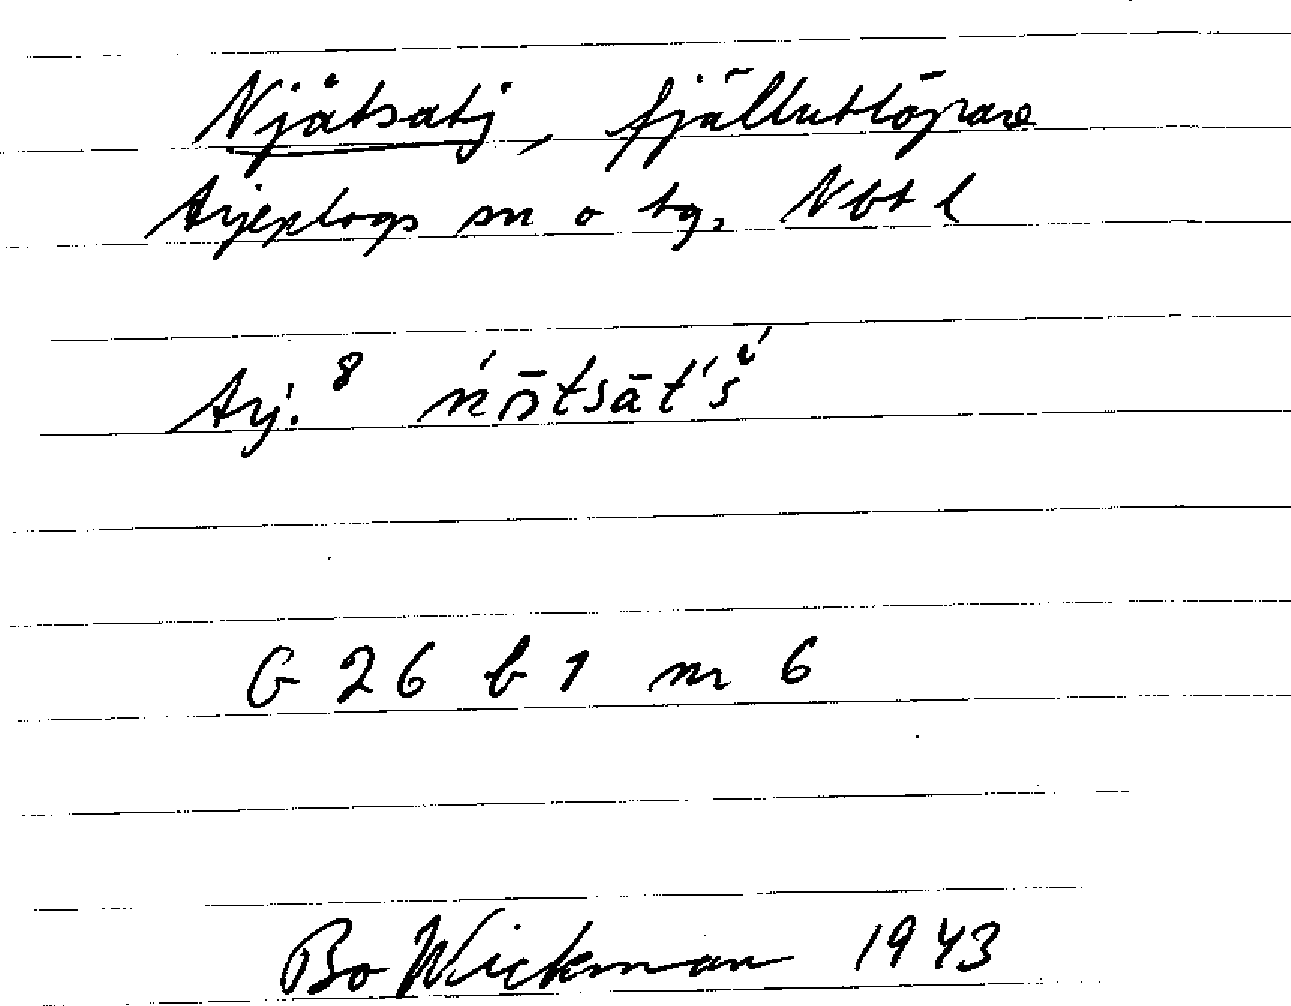 Njåtsatj, fjällutlöpare
Arjeplogs sn o tg, Nbt l
Arj. 8 ńɔ̄tsāt́š́
G 26 b 1 nr 6
Bo Wickman 1943